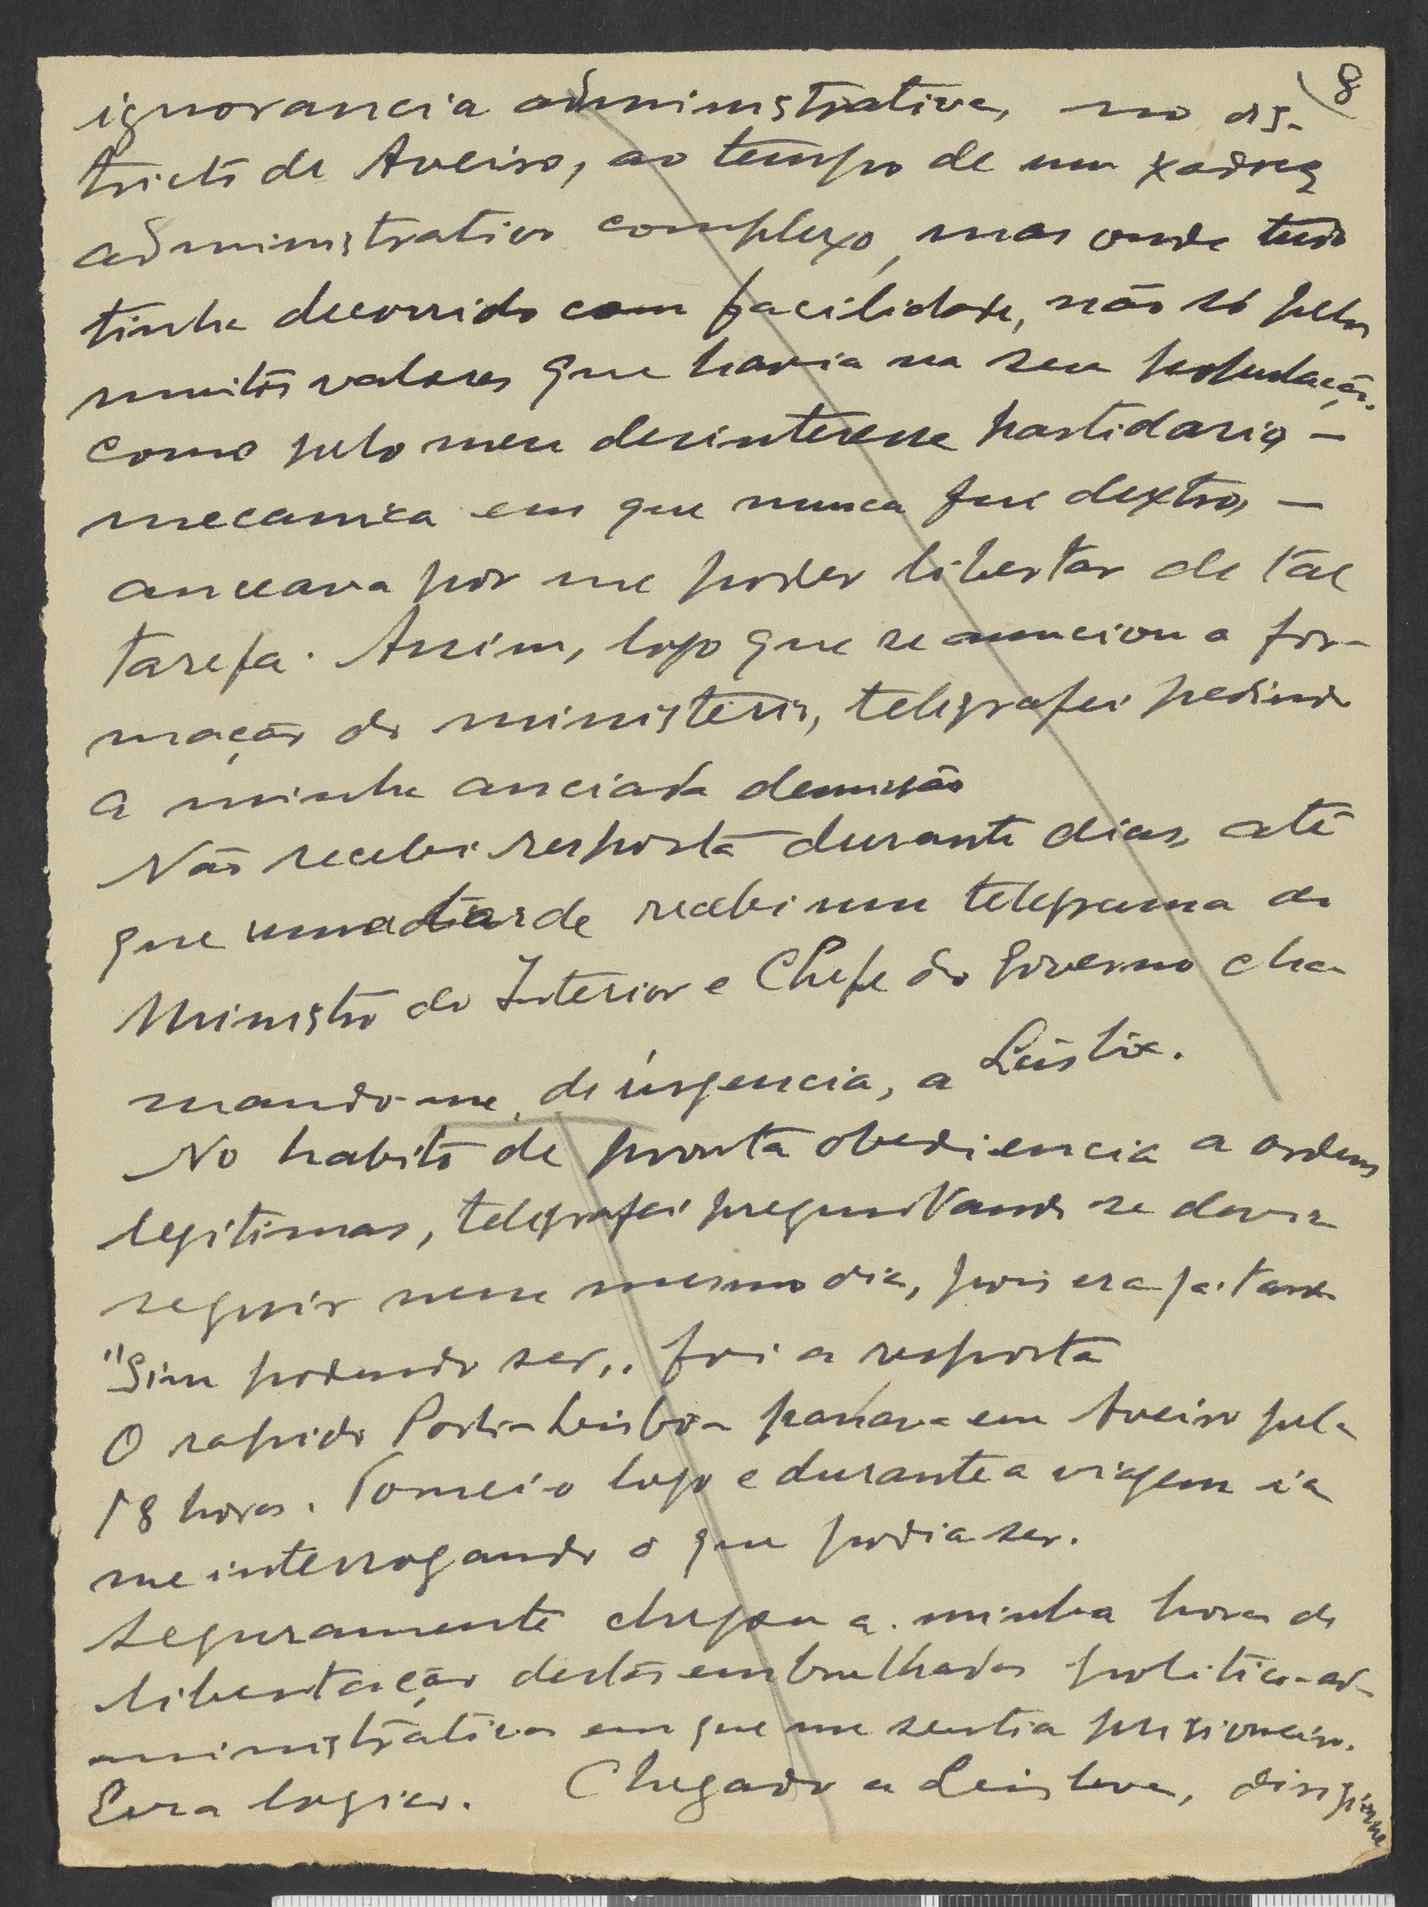 8
ignorancia administrativa, no dis-
tricto de Aveiro, ao tempo de um xadrez
administrativo complexo, mas onde tudo
tinha decorrido com facilidade, não só pelos
muitos valores que havia na sua população,
como pelo meu desinteresse partidario –
mecanica em que nunca fui dextro, –
anceava por me poder libertar de tal
tarefa. Assim, logo que se anunciou a for-
mação do ministerio, telegrafei pedindo
a minha anciada demissão
Não recebi resposta durante dias, até
que uma tarde recebi um telegrama do
Ministro do Interior e Chefe do Governo cha-
mando-me, de urgencia, a Lisboa.
No habito de pronta obediencia a ordens
legitimas, telegrafei preguntando se devia
seguir nesse mesmo dia, pois era já tarde
"Sim podendo ser,, foi a resposta
O rapido Porto-Lisboa passava em Aveiro pelas
18 horas. Tomei-o logo e durante a viagem ia
me interrogando o que podia ser.
Seguramente chegou a minha hora de
libertação destas embrulhadas politico-ad-
ministrativas em que me sentia prisioneiro.
Era logico. Chegado a Lisboa, dirigi-me